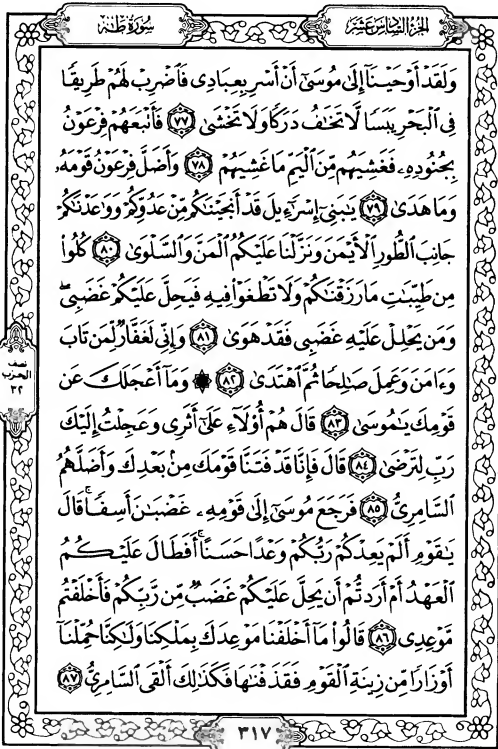 الجزء السادس عشر
سورة طه
وَلَقَدْ أَوْحَيْنَآ إِلَىٰ مُوسَىٰٓ أَنْ أَسْرِ بِعِبَادِى فَٱضْرِبْ لَهُمْ طَرِيقًا
فِى ٱلْبَحْرِ يَبَسًا لَّا تَخَٰفُ دَرَكًا وَلَا تَخْشَىٰ ٧٧ فَأَتْبَعَهُمْ فِرْعَوْنُ
بِجُنُودِهِۦ فَغَشِيَهُم مِّنَ ٱلْيَمِّ مَا غَشِيَهُمْ ٧٨ وَأَضَلَّ فِرْعَوْنُ قَوْمَهُۥ
وَمَا هَدَىٰ ٧٩ يَٰبَنِىٓ إِسْرَٰٓءِيلَ قَدْ أَنجَيْنَٰكُم مِّنْ عَدُوِّكُمْ وَوَٰعَدْنَٰكُمْ
جَانِبَ ٱلطُّورِ ٱلْأَيْمَنَ وَنَزَّلْنَا عَلَيْكُمُ ٱلْمَنَّ وَٱلسَّلْوَىٰ ٨٠ كُلُوا۟
مِن طَيِّبَٰتِ مَا رَزَقْنَٰكُمْ وَلَا تَطْغَوْا۟ فِيهِ فَيَحِلَّ عَلَيْكُمْ غَضَبِى ۖ
وَمَن يَحْلِلْ عَلَيْهِ غَضَبِى فَقَدْ هَوَىٰ ٨١ وَإِنِّى لَغَفَّارٌ لِّمَن تَابَ
وَءَامَنَ وَعَمِلَ صَٰلِحًا ثُمَّ ٱهْتَدَىٰ ٨٢ ۞ وَمَآ أَعْجَلَكَ عَن
قَوْمِكَ يَٰمُوسَىٰ ٨٣ قَالَ هُمْ أُو۟لَآءِ عَلَىٰٓ أَثَرِى وَعَجِلْتُ إِلَيْكَ
رَبِّ لِتَرْضَىٰ ٨٤ قَالَ فَإِنَّا قَدْ فَتَنَّا قَوْمَكَ مِنۢ بَعْدِكَ وَأَضَلَّهُمُ
ٱلسَّامِرِىُّ ٨٥ فَرَجَعَ مُوسَىٰٓ إِلَىٰ قَوْمِهِۦ غَضْبَٰنَ أَسِفًا ۚ قَالَ
يَٰقَوْمِ أَلَمْ يَعِدْكُمْ رَبُّكُمْ وَعْدًا حَسَنًا ۚ أَفَطَالَ عَلَيْكُمُ
ٱلْعَهْدُ أَمْ أَرَدتُّمْ أَن يَحِلَّ عَلَيْكُمْ غَضَبٌ مِّن رَّبِّكُمْ فَأَخْلَفْتُم
مَّوْعِدِى ٨٦ قَالُوا۟ مَآ أَخْلَفْنَا مَوْعِدَكَ بِمَلْكِنَا وَلَٰكِنَّا حُمِّلْنَآ
أَوْزَارًا مِّن زِينَةِ ٱلْقَوْمِ فَقَذَفْنَٰهَا فَكَذَٰلِكَ أَلْقَى ٱلسَّامِرِىُّ ٨٧
نصف
الحزب
٣٢
٣١٧